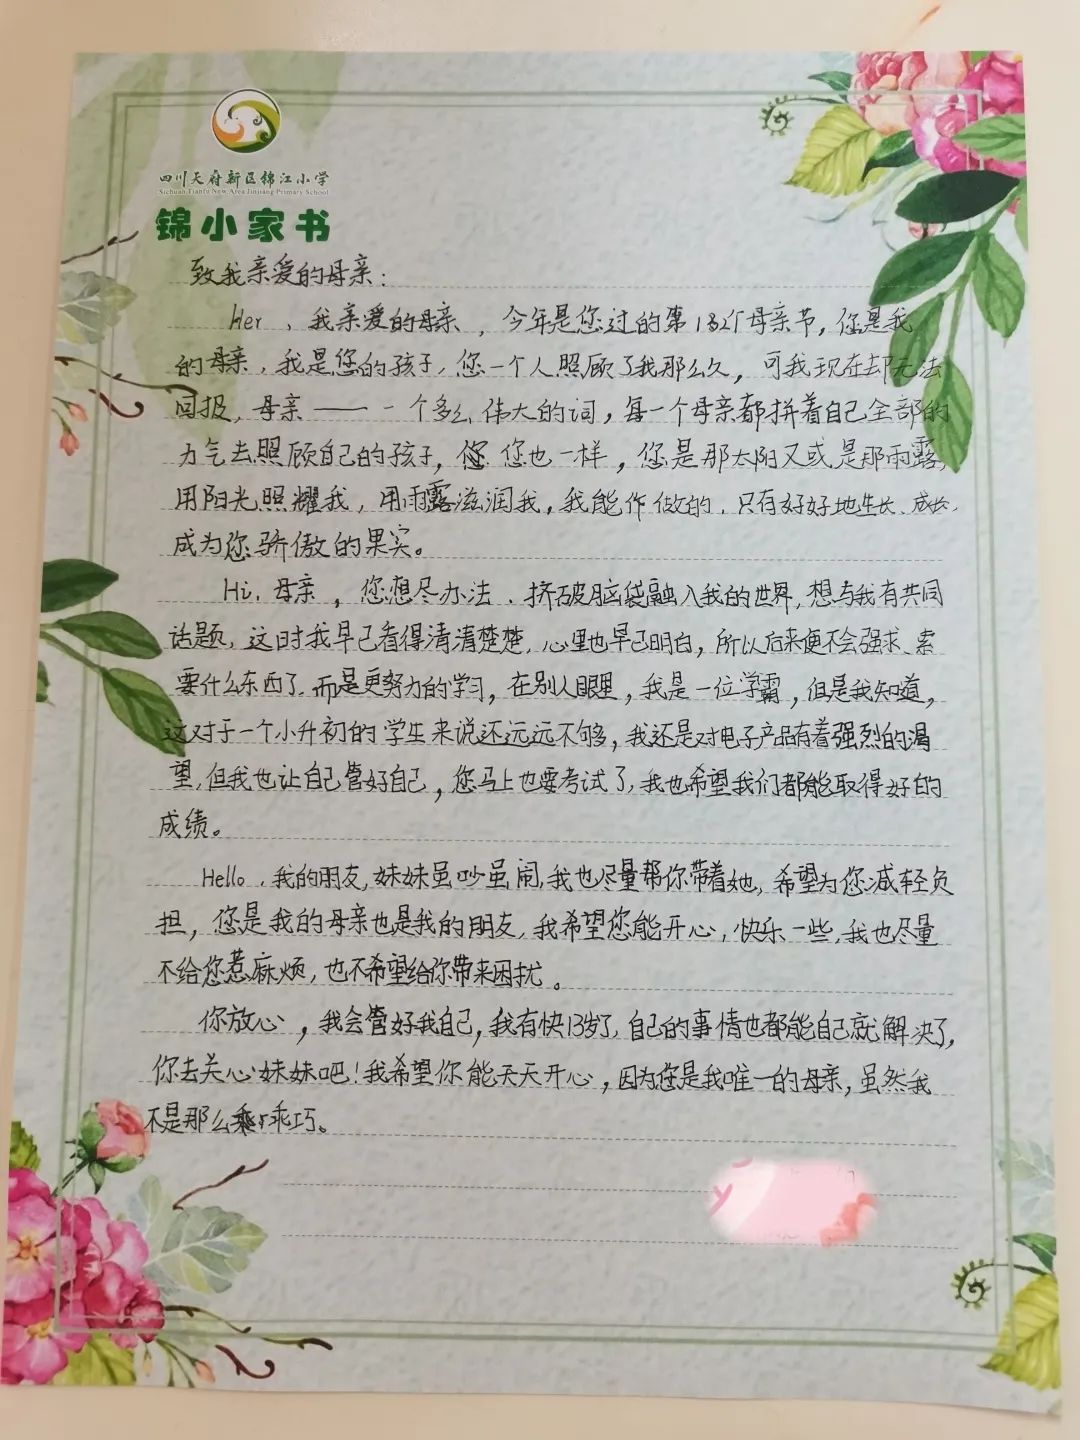 四川天府新区锦江小学
Sichuan Tianfu New Area Jinjiang Primary School
锦小家书
致我亲爱的母亲：
Her、我亲爱的母亲，今年是您过的第13个母亲节，您是我
的母亲，我是您的孩子，您一个人照顾了我那么久，可我现在却无法
回报，母亲——一个多么伟大的词，每一个母亲都拼着自己全部的
力气去照顾自己的孩子，您您也一样，您是那太阳又或是那雨露，
用阳光照耀我，用雨露滋润我，我能作做的，只有好好地生长、成长，
成为您骄傲的果实。
Hi，母亲，您想尽办法、挤破脑袋融入我的世界，想与我有共同
话题，这时我早已看得清清楚楚，心里也早已明白，所以后来便不会强求、索
要什么东西了，而是更努力的学习，在别人眼里，我是一位学霸，但是我知道，
这对于一个小升初的学生来说还远远不够，我还是对电子产品有着强烈的渴
望，但我也让自己管好自己，您马上也要考试了，我也希望我们都能取得好的
成绩。
Hello，我的朋友，妹妹虽吵虽闹，我也尽量帮你带着她，希望为您减轻负
担，您是我的母亲也是我的朋友，我希望您能开心，快乐一些，我也尽量
不给您惹麻烦，也不希望给你带来困扰。
你放心，我会管好我自己，我有快13岁了，自己的事情也都能自己就解决了，
你去关心妹妹吧！我希望你能天天开心，因为您是我唯一的母亲，虽然我
不是那么乖巧。